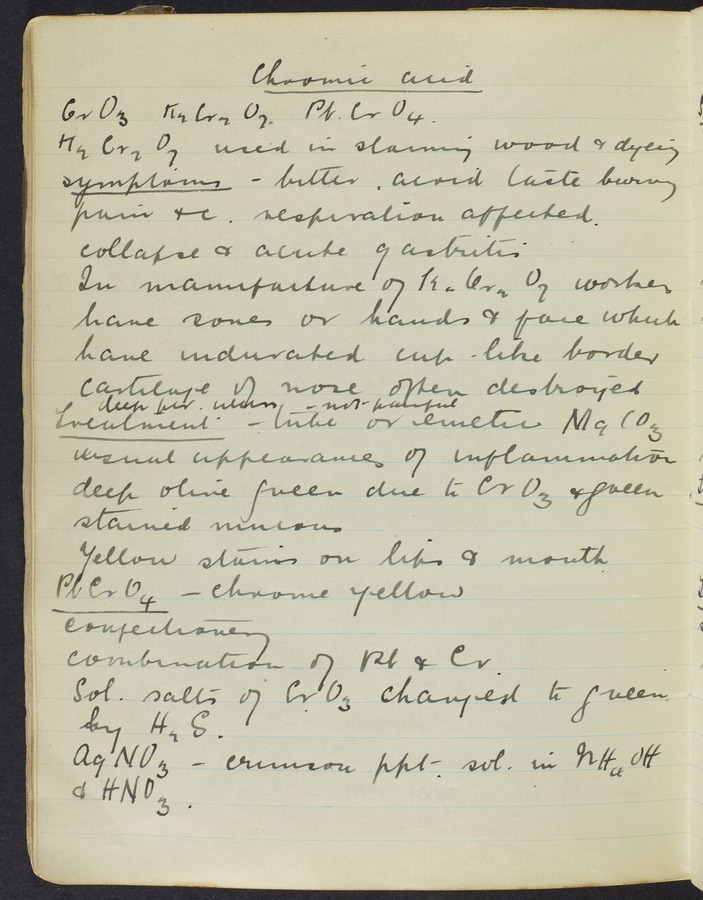 Chromic acid
CrO3 K2Cr2O7. Pb.CrO4.
K2Cr2O7 used in staining wood & dyeing
symptoms - bitter, acrid taste burning
pain &c. respiration affected.
collapse & acute gastritis
In manufacture of K2Cr2O7 workers
have sores on hands & face which
have indurated cup-like border
cartilage of nose often destroyed
deep per. ulcers - not painful
Treatment - tube or emetic MgCO3
usual appearances of inflammation
deep olive green due to CrO3 & green
stained mucous
Yellow stains on lips & mouth
PbCrO4 - chrome yellow
confectionery
combination of Pb & Cr.
Sol. salts of CrO3 changed to green
by H2S.
AgNO3 - crimson ppt. sol. in NH4OH
& HNO3.